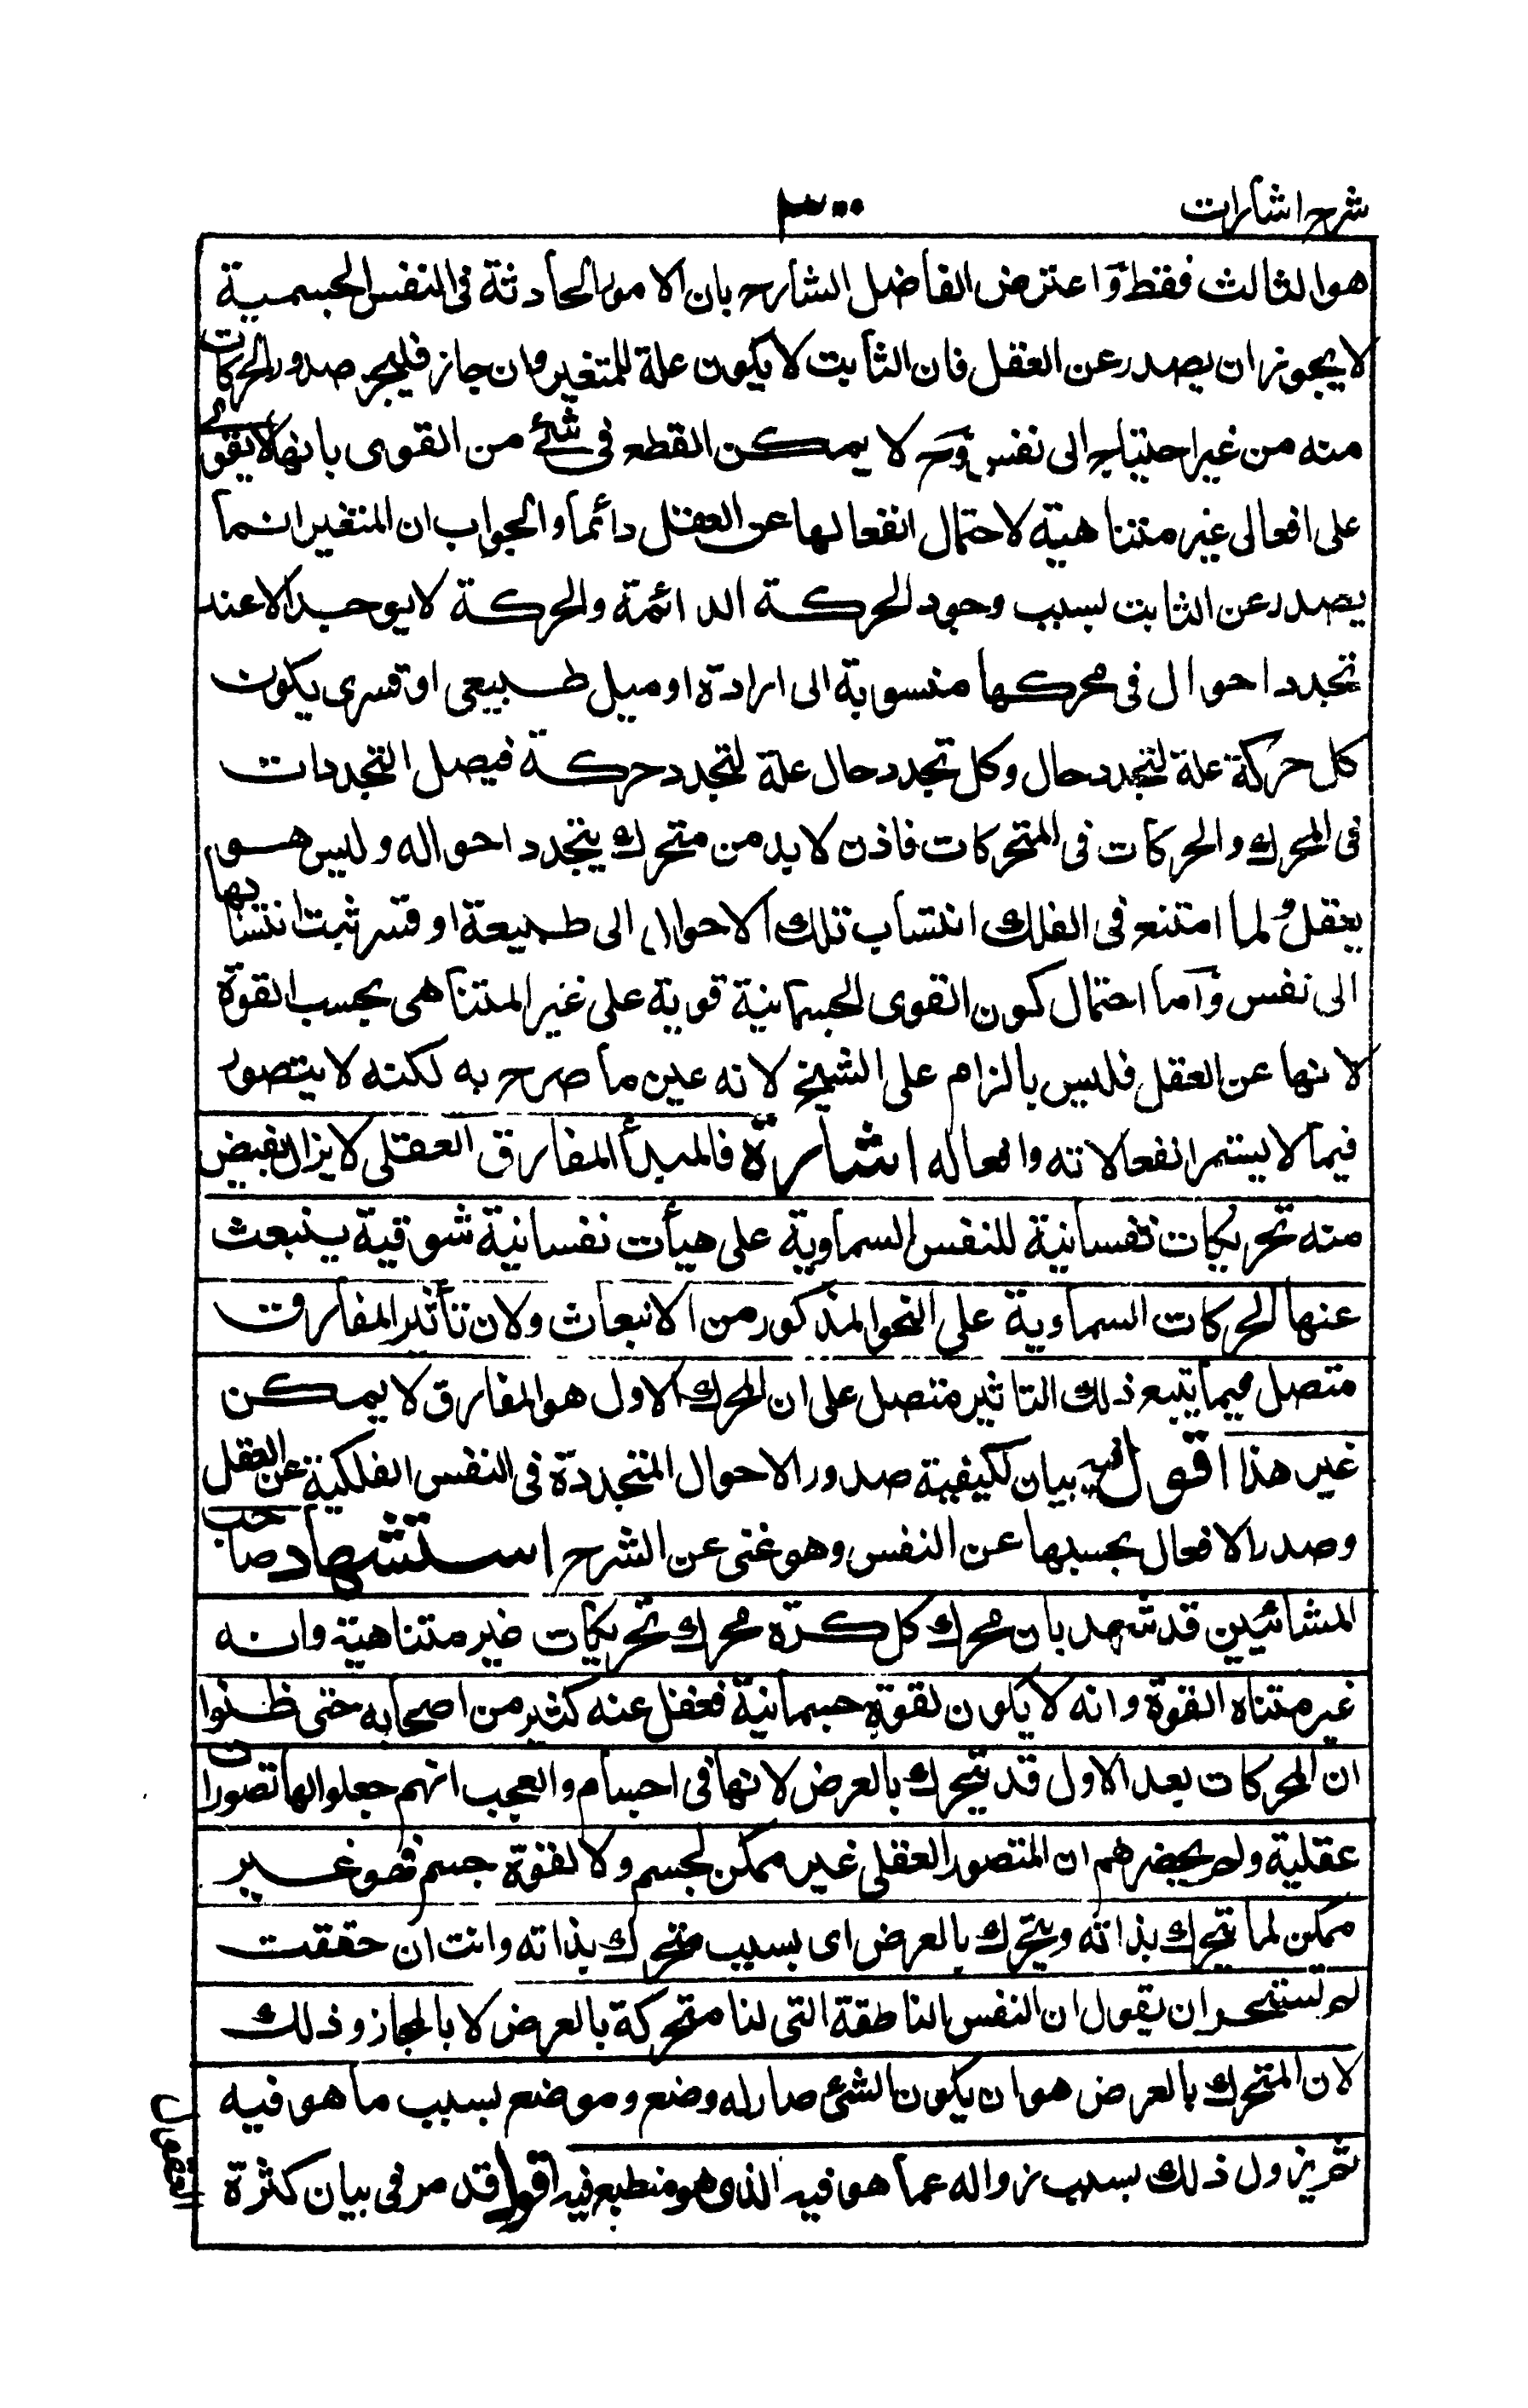 شرح اشارات
٣٠٠
هو الثالث فقط وَاعترض الفاضل الشارح بان الامور الحادثة فى النفس الجسمية
لا يجوز ان يصدر عن العقل فان الثابت لا يكون علة للمتغير وان جاز فليجز صدور الحركات
منه من غير احتياج الى نفس وَح لا يمكن القطع فى شئ من القوى بانها لا يقوى
على افعال غير متناهية لاحتمال انفعالها عن العقل دائما والجواب ان المتغير انما
يصدر عن الثابت بسبب وجود الحركة الدائمة والحركة لا يوجد الا عند
تجدد احوال فى محركها منسوبة الى ارادة او ميل طبيعى او قسرى يكون
كل حركة علة لتجدد حال وكل تجدد حال علة لتجدد حركة فيصل التجددات
فى المحرك والحركات فى المتحركات فاذن لا بد من متحرك يتجدد احواله وليس هو
بعقل ولما امتنع فى الفلك انتساب تلك الاحوال الى طبيعة او قسر ثبت انتسابها
الى نفس وَاما احتمال كون القوى الجسمانية قوية على غير المتناهى بحسب القوة
لا نها عن العقل فليس بالزام على الشيخ لانه عين ما صرح به لكنه لا يتصور
فيما لا يستمر انفعالاته وافعاله اشارة فالمبدأ المفارق العقلى لا يزال يفيض
منه تحريكات نفسانية للنفس السماوية على هيأت نفسانية شوقية ينبعث
عنها الحركات السماوية على النحو المذكور من الانبعاث ولان تأثير المفارقت
متصل فيما يتبع ذلك التاثير متصل على ان المحرك الاول هو المفارق لا يمكن
غير هذا اقول فيه بيان لكيفية صدور الاحوال المتجددة فى النفس الفلكية عن العقل
وصدر الافعال بحسبها عن النفس وهو غنى عن الشرح استشهاد صاحب
المشائيين قد شهد بان محرك كل كرة محرك تحريكات غير متناهية وانه
غير متناه القوة وانه لا يكون لقوة جسمانية فغفل عنه كثير من اصحابه حتى ظنوا
ان المحركات بعد الاول قد يتحرك بالعرض لانها فى اجسام والعجب انهم جعلوا لها تصورات
عقلية ولم يحضرهم ان التصور العقلى غير ممكن لجسم ولا لقوة جسم فهو غير
ممكن لما يتحرك بذاته ويتحرك بالعرض اى بسبب متحرك بذاته وانت ان حققت
لم تستجز ان يقول ان النفس الناطقة التى لنا متحركة بالعرض لا بالمجاز وذلك
لان المتحرك بالعرض هو ان يكون الشئ صار له وضع وموضع بسبب ما هو فيه
ثم يزول ذلك بسبب زواله عما هو فيه الذى هو منطبع فيه اقول قد مر فى بيان كثرة